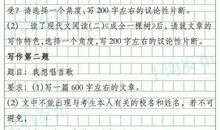 受？请选择一个角度,写 200 字左右的议论性片断。
(2) 、读了现代文阅读(二)《成全一棵树》后、请就文章的
写作特色,选择一个角度,写 200 字左右的评论性片断。
写作第二题
题目：我想唱首歌
要求：(1)写一篇 600 字左右的文章。
(2) 文中不能出现与考生本人有关的校名和姓名，若不可
避免，